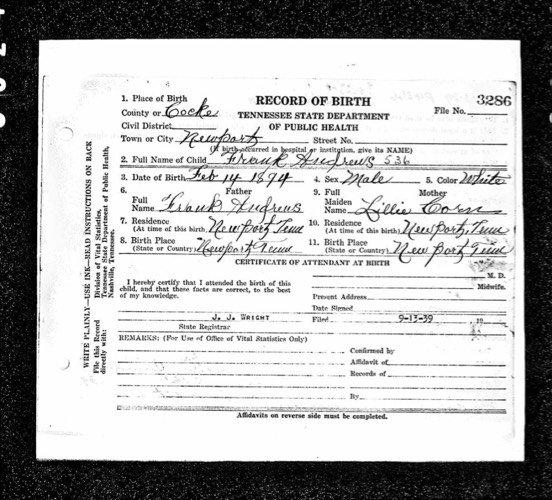 1. Place of Birth
RECORD OF BIRTH
3286
County or Cocke
TENNESSEE STATE DEPARTMENT
File No.
Civil District
OF PUBLIC HEALTH
Town or City Newport
Street No.
(If birth occurred in hospital or institution, give its NAME)
2. Full Name of Child Frank Andrews 536
3. Date of Birth Feb 14 1894 4. Sex Male 5. Color White
6. Father 9. Full Mother
Full Name Frank Andrews Maiden Name Lillie Corn
7. Residence (At time of this birth) Newport, Tenn 10. Residence (At time of this birth) Newport, Tenn
8. Birth Place (State or Country) Newport, Tenn 11. Birth Place (State or Country) Newport Tenn
CERTIFICATE OF ATTENDANT AT BIRTH
M. D.
I hereby certify that I attended the birth of this
Midwife.
child, and that these facts are correct, to the best
of my knowledge.
Present Address
Date Signed
J. J. WRIGHT
Filed 9-13-39 19
State Registrar
REMARKS: (For Use of Office of Vital Statistics Only)
Confirmed by
Affidavit of
Records of
By
Affidavits on reverse side must be completed.
WRITE PLAINLY—USE INK—READ INSTRUCTIONS ON BACK
File this Record directly with:
Division of Vital Statistics,
Tennessee State Department of Public Health,
Nashville, Tennessee.